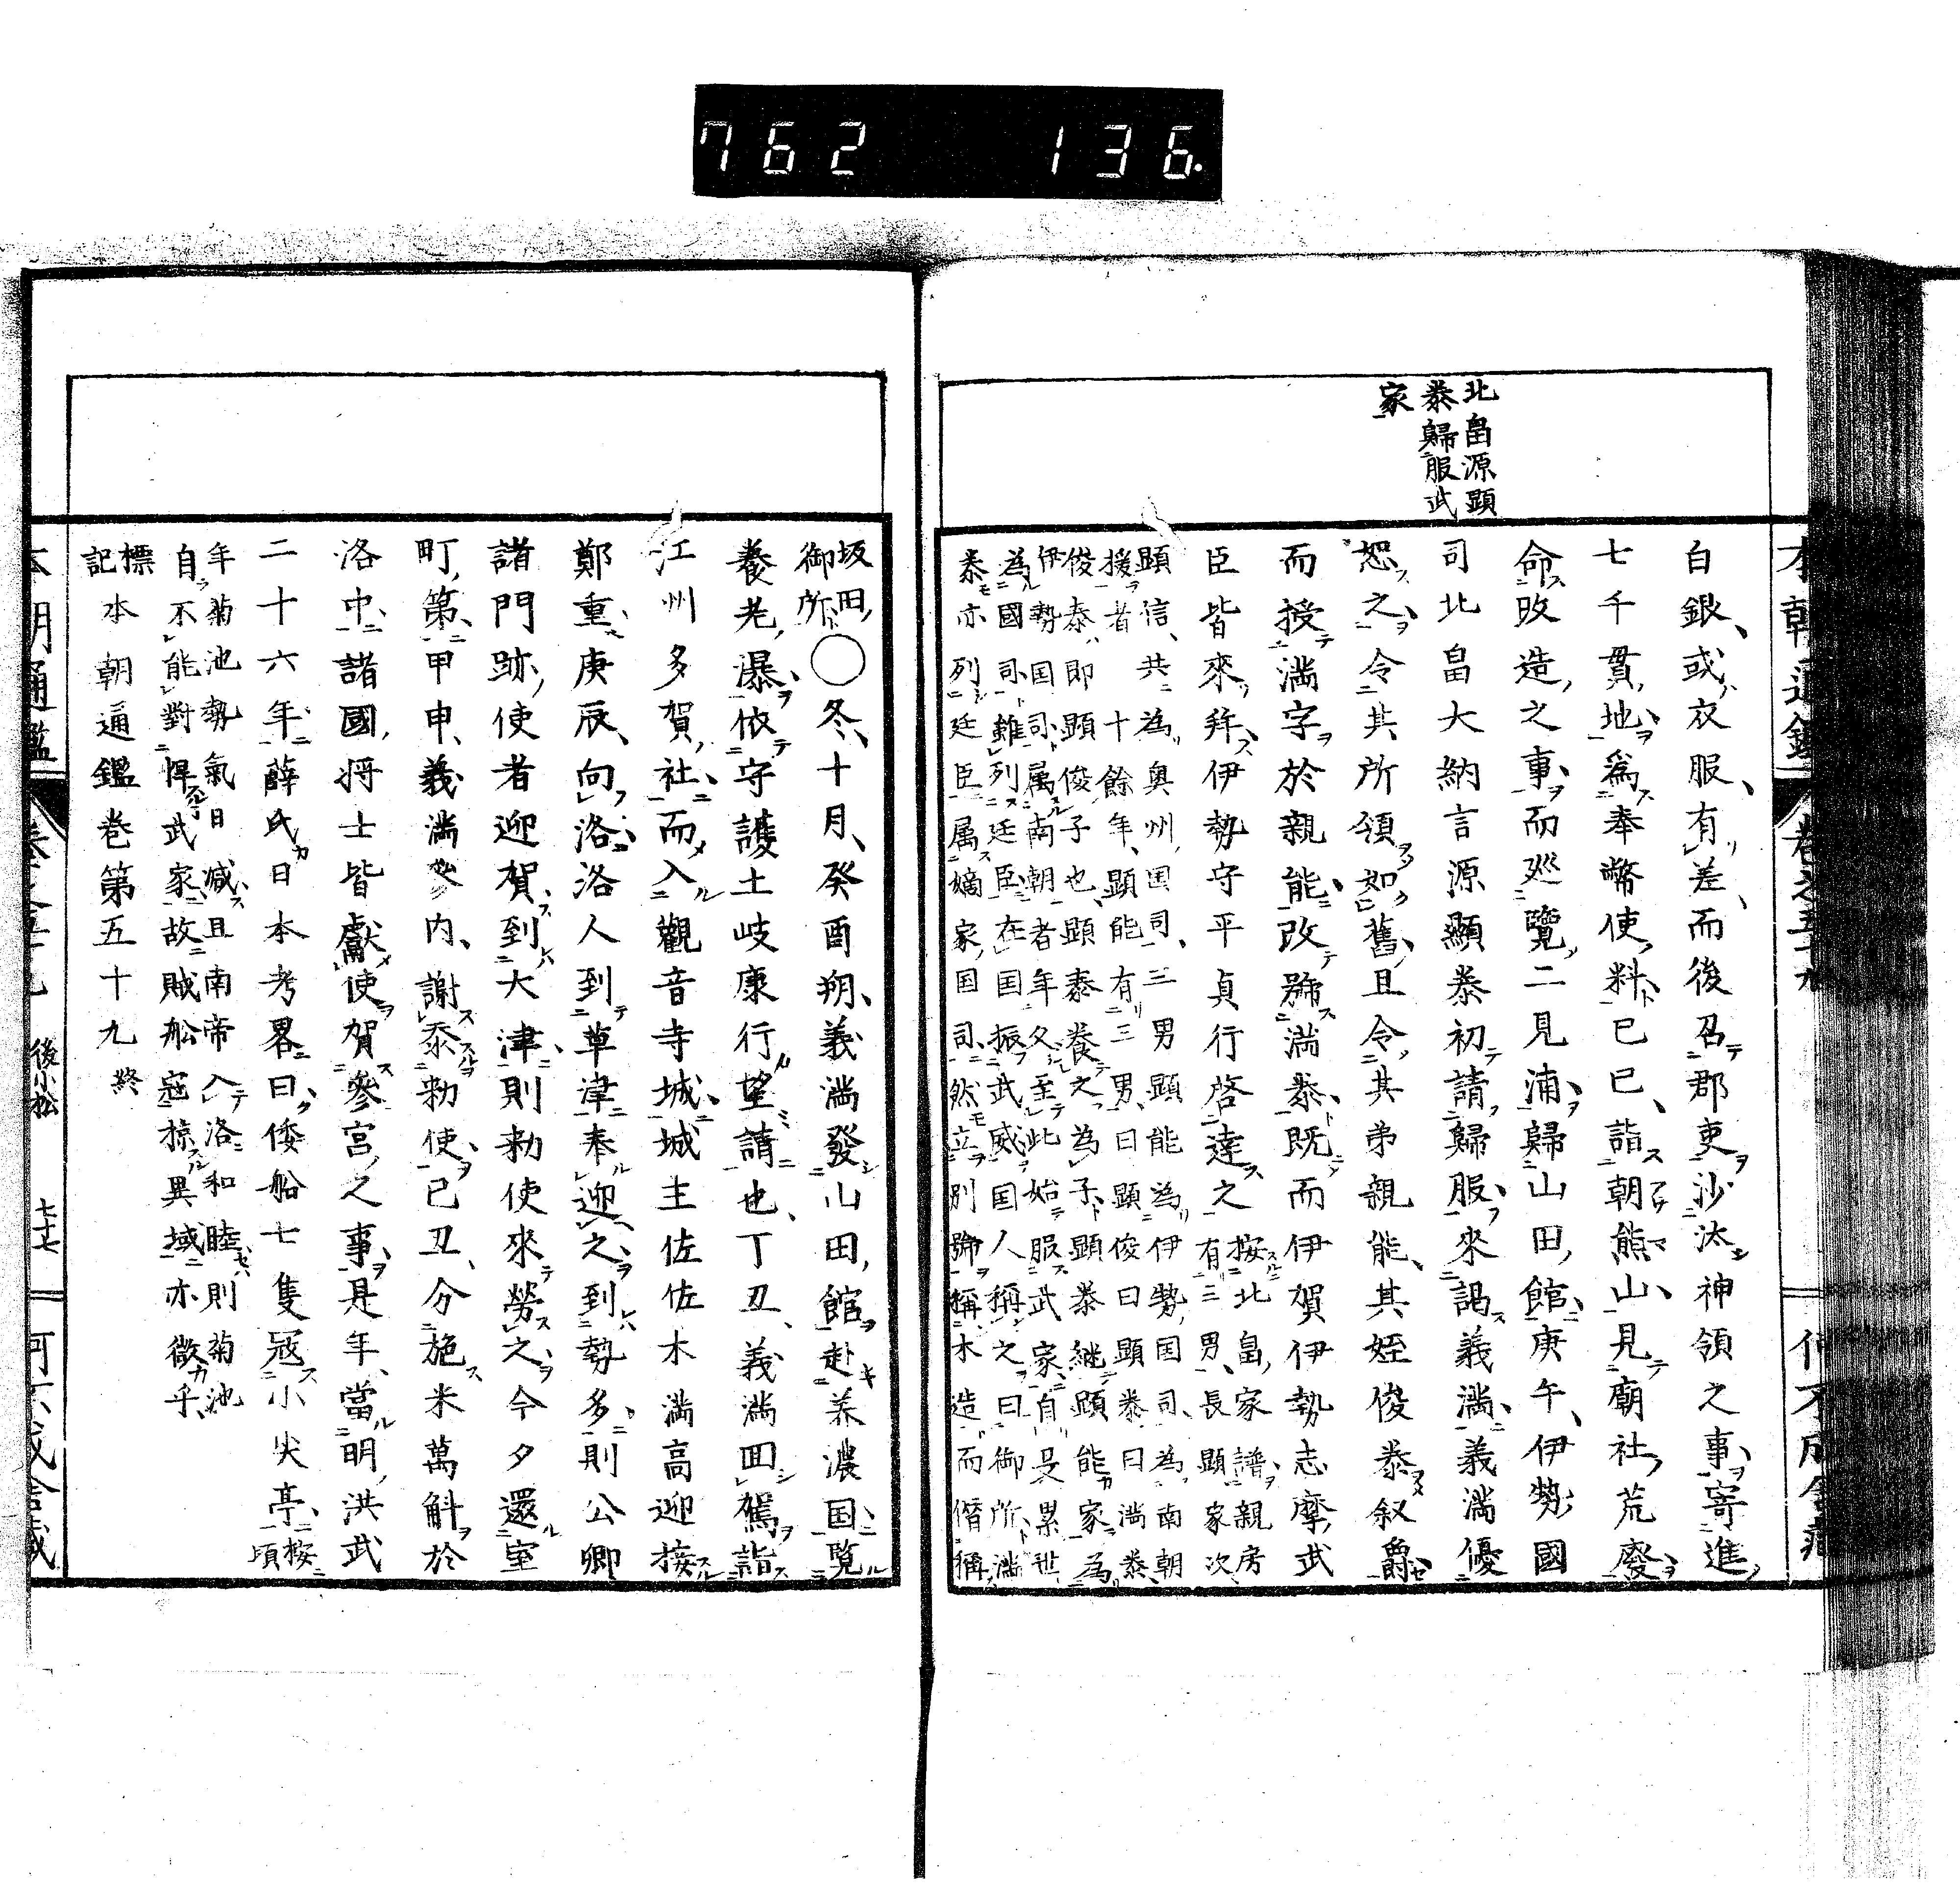 762 136.
北畠源顕
泰歸服武
家
白銀或衣服有差而後召郡吏沙汰神領之事寄進
七千貫地爲奉幣使料已巳詣朝熊山見廟社荒廢
命改造之事而巡覽二見浦歸山田館庚午伊勢國
司北畠大納言源顯泰初請歸服來謁義滿義滿優
恕之令其所領如舊且令其弟親能其姪俊泰叙爵
而授満字於親能改號満泰既而伊賀伊勢志摩武
臣皆來拜伊勢守平貞行啓達之
按北畠家譜親房
有三男長顕家次
顕信共為奥州国司三男顕能為伊勢国司為南朝
援者十餘年顕能有三男曰顕俊曰顕泰曰満泰
俊泰即顕俊子也顕泰養之為子顕泰継顕能家為
伊勢国司属南朝者年久至此始服武家自是累世
為國司雖列廷臣在国振武威国人稱之曰御所満
泰亦列廷臣属嫡家国司然立別號稱木造而僭稱
坂田
御所
○冬十月癸酉朔義満發山田館赴美濃国覧
養老瀑依守護土岐康行望請也丁丑義満囬駕詣
江州多賀社而入觀音寺城城主佐佐木満高迎接
鄭重庚辰向洛洛人到草津奉迎之到勢多則公卿
諸門跡使者迎賀到大津則勅使來勞之今夕還室
町第甲申義満参内謝忝勅使已丑分施米萬斛於
洛中諸國将士皆獻使賀參宮之事是年當明洪武
二十六年薛氏日本考畧曰倭船七隻冦小尖亭
按
頃
年菊池勢氣日減且南帝入洛和睦則菊池
自不能對悍武家故賊船寇掠異域亦微乎
標
記
本朝通鑑巻第五十九終
後小松
七十七